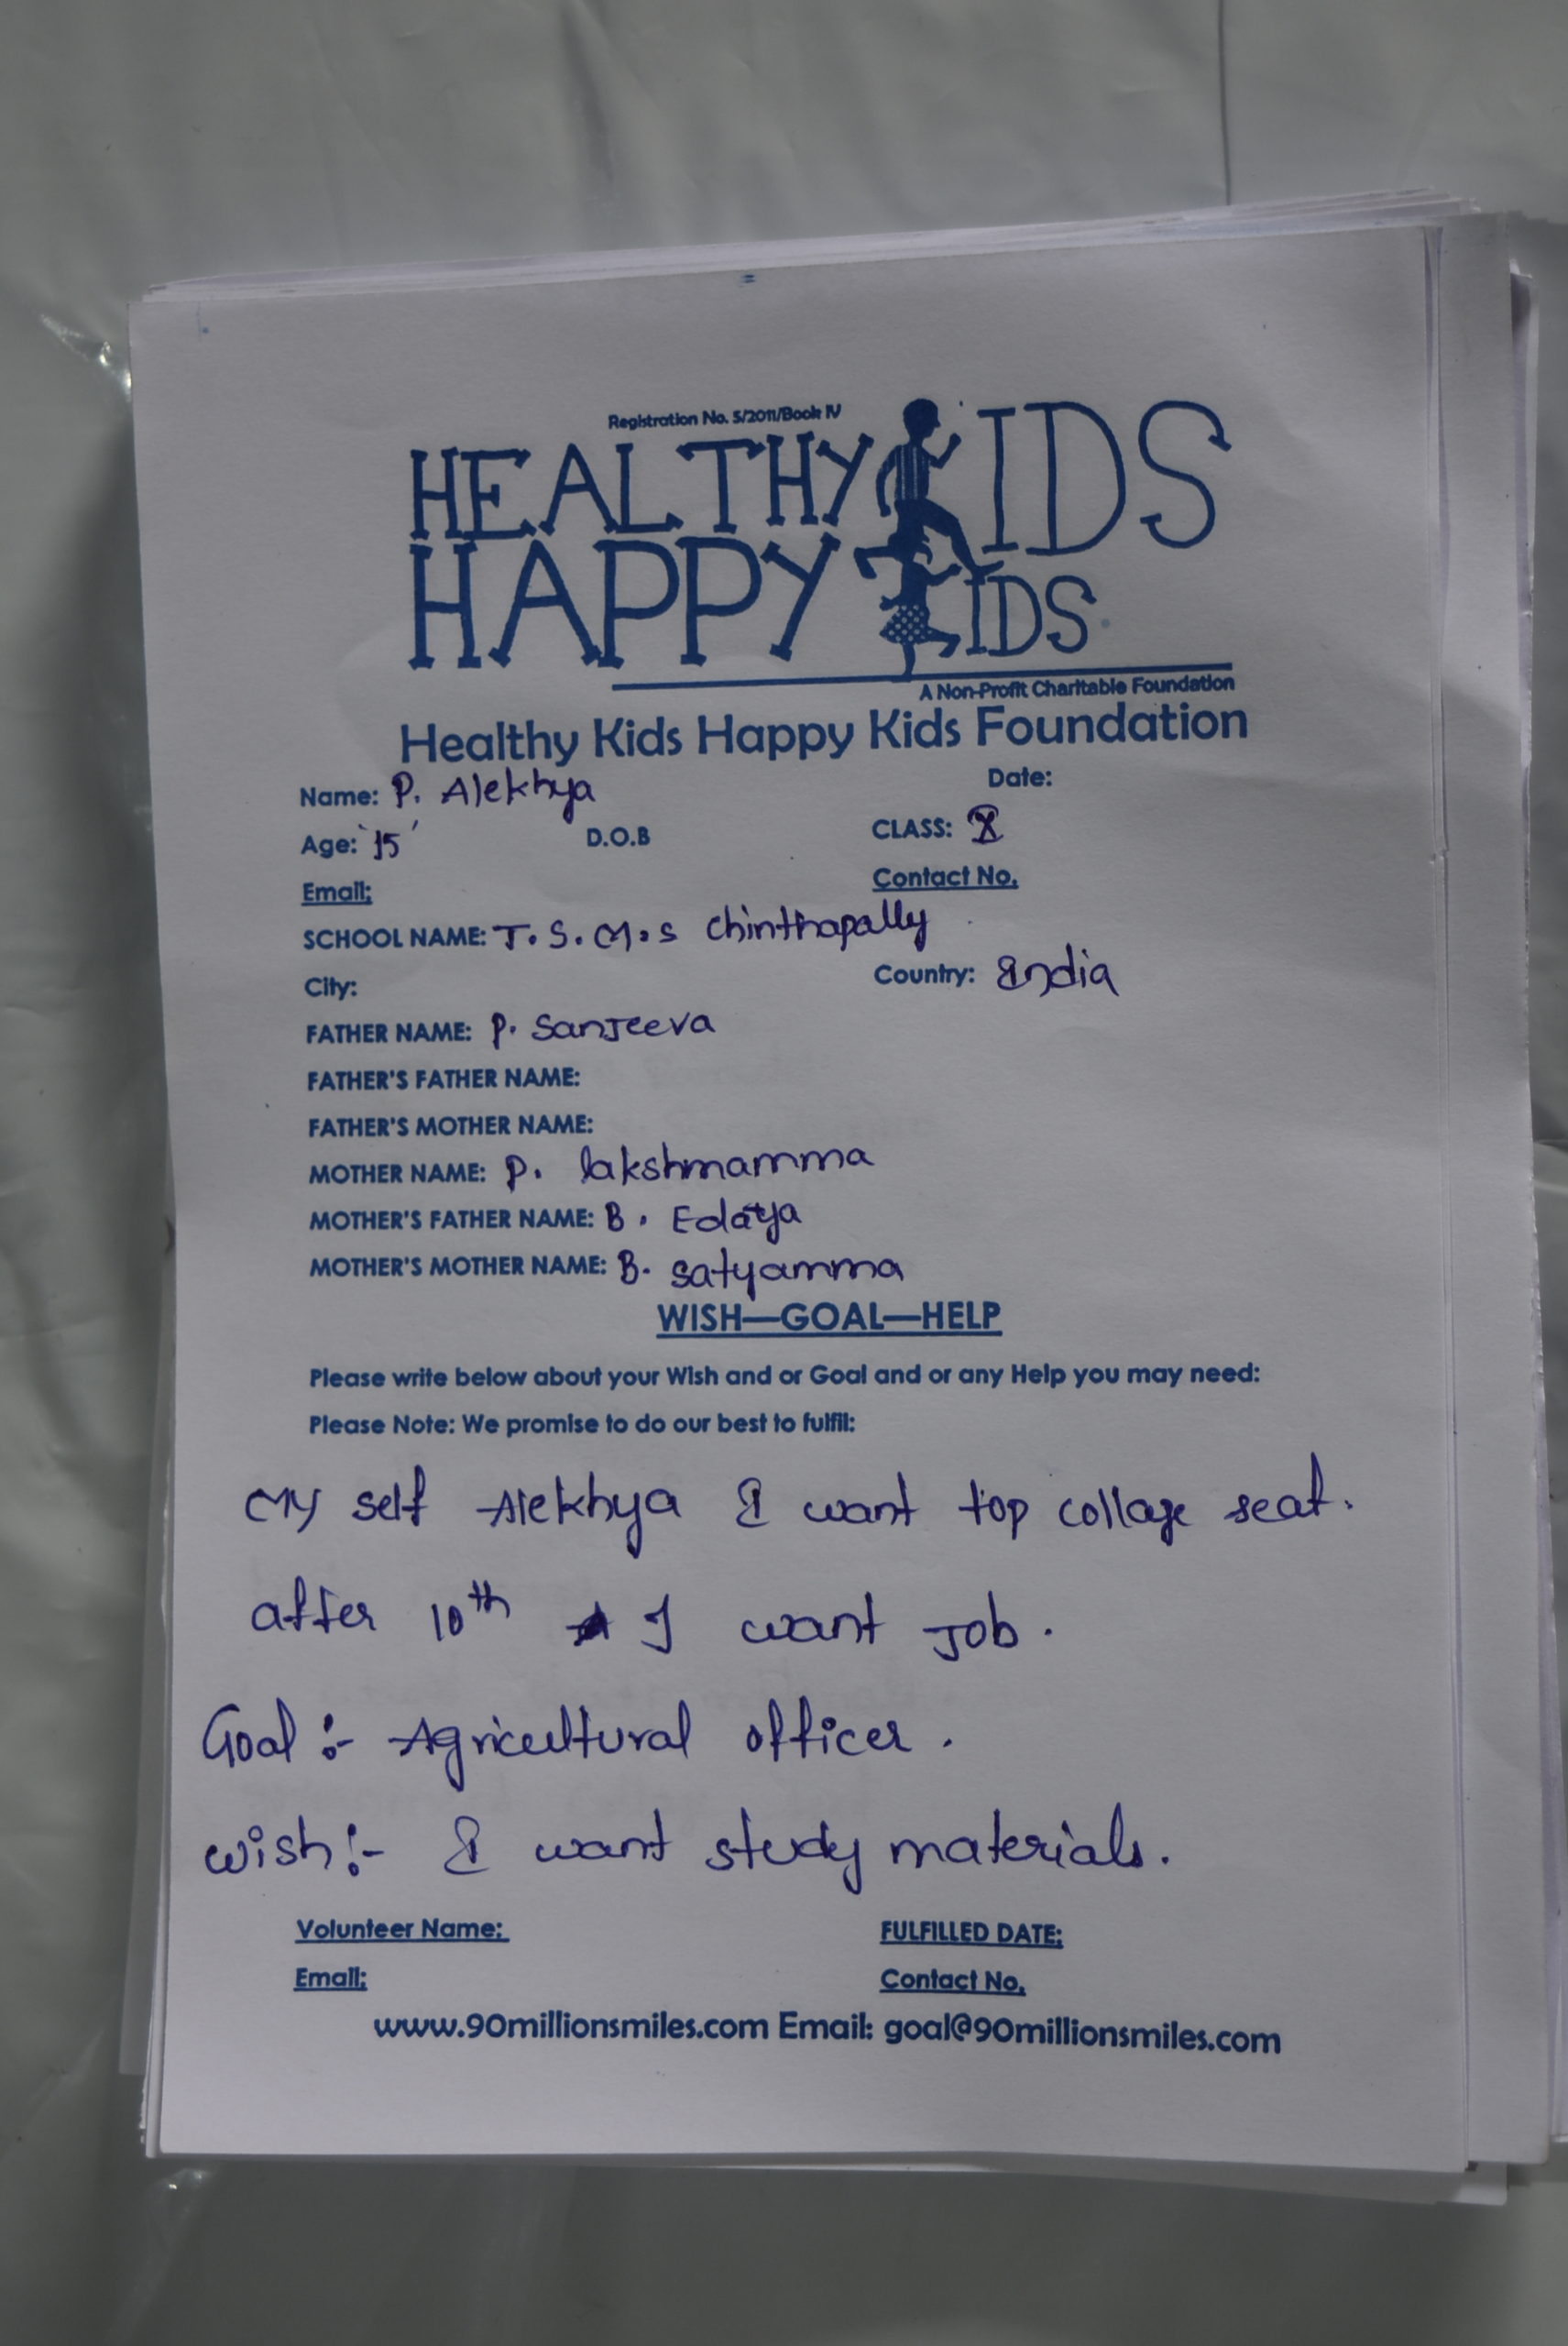 Registration No. 5/2011/Book IV
HEALTHY KIDS
HAPPY KIDS
A Non-Profit Charitable Foundation
Healthy Kids Happy Kids Foundation
Name: P. Alekhya Date:
Age: 15 D.O.B CLASS: X
Email: Contact No.
SCHOOL NAME: T.S.M.S Chinthapally
City: Country: India
FATHER NAME: P. Sanjeeva
FATHER'S FATHER NAME:
FATHER'S MOTHER NAME:
MOTHER NAME: P. lakshmamma
MOTHER'S FATHER NAME: B. Edaya
MOTHER'S MOTHER NAME: B. satyamma
WISH—GOAL—HELP
Please write below about your Wish and or Goal and or any Help you may need:
Please Note: We promise to do our best to fulfil:
My self Alekhya I want top collage seat.
after 10th I want Job.
Goal :- Agricultural officer.
wish:- I want study materials.
Volunteer Name: FULFILLED DATE:
Email: Contact No.
www.90millionsmiles.com Email: goal@90millionsmiles.com